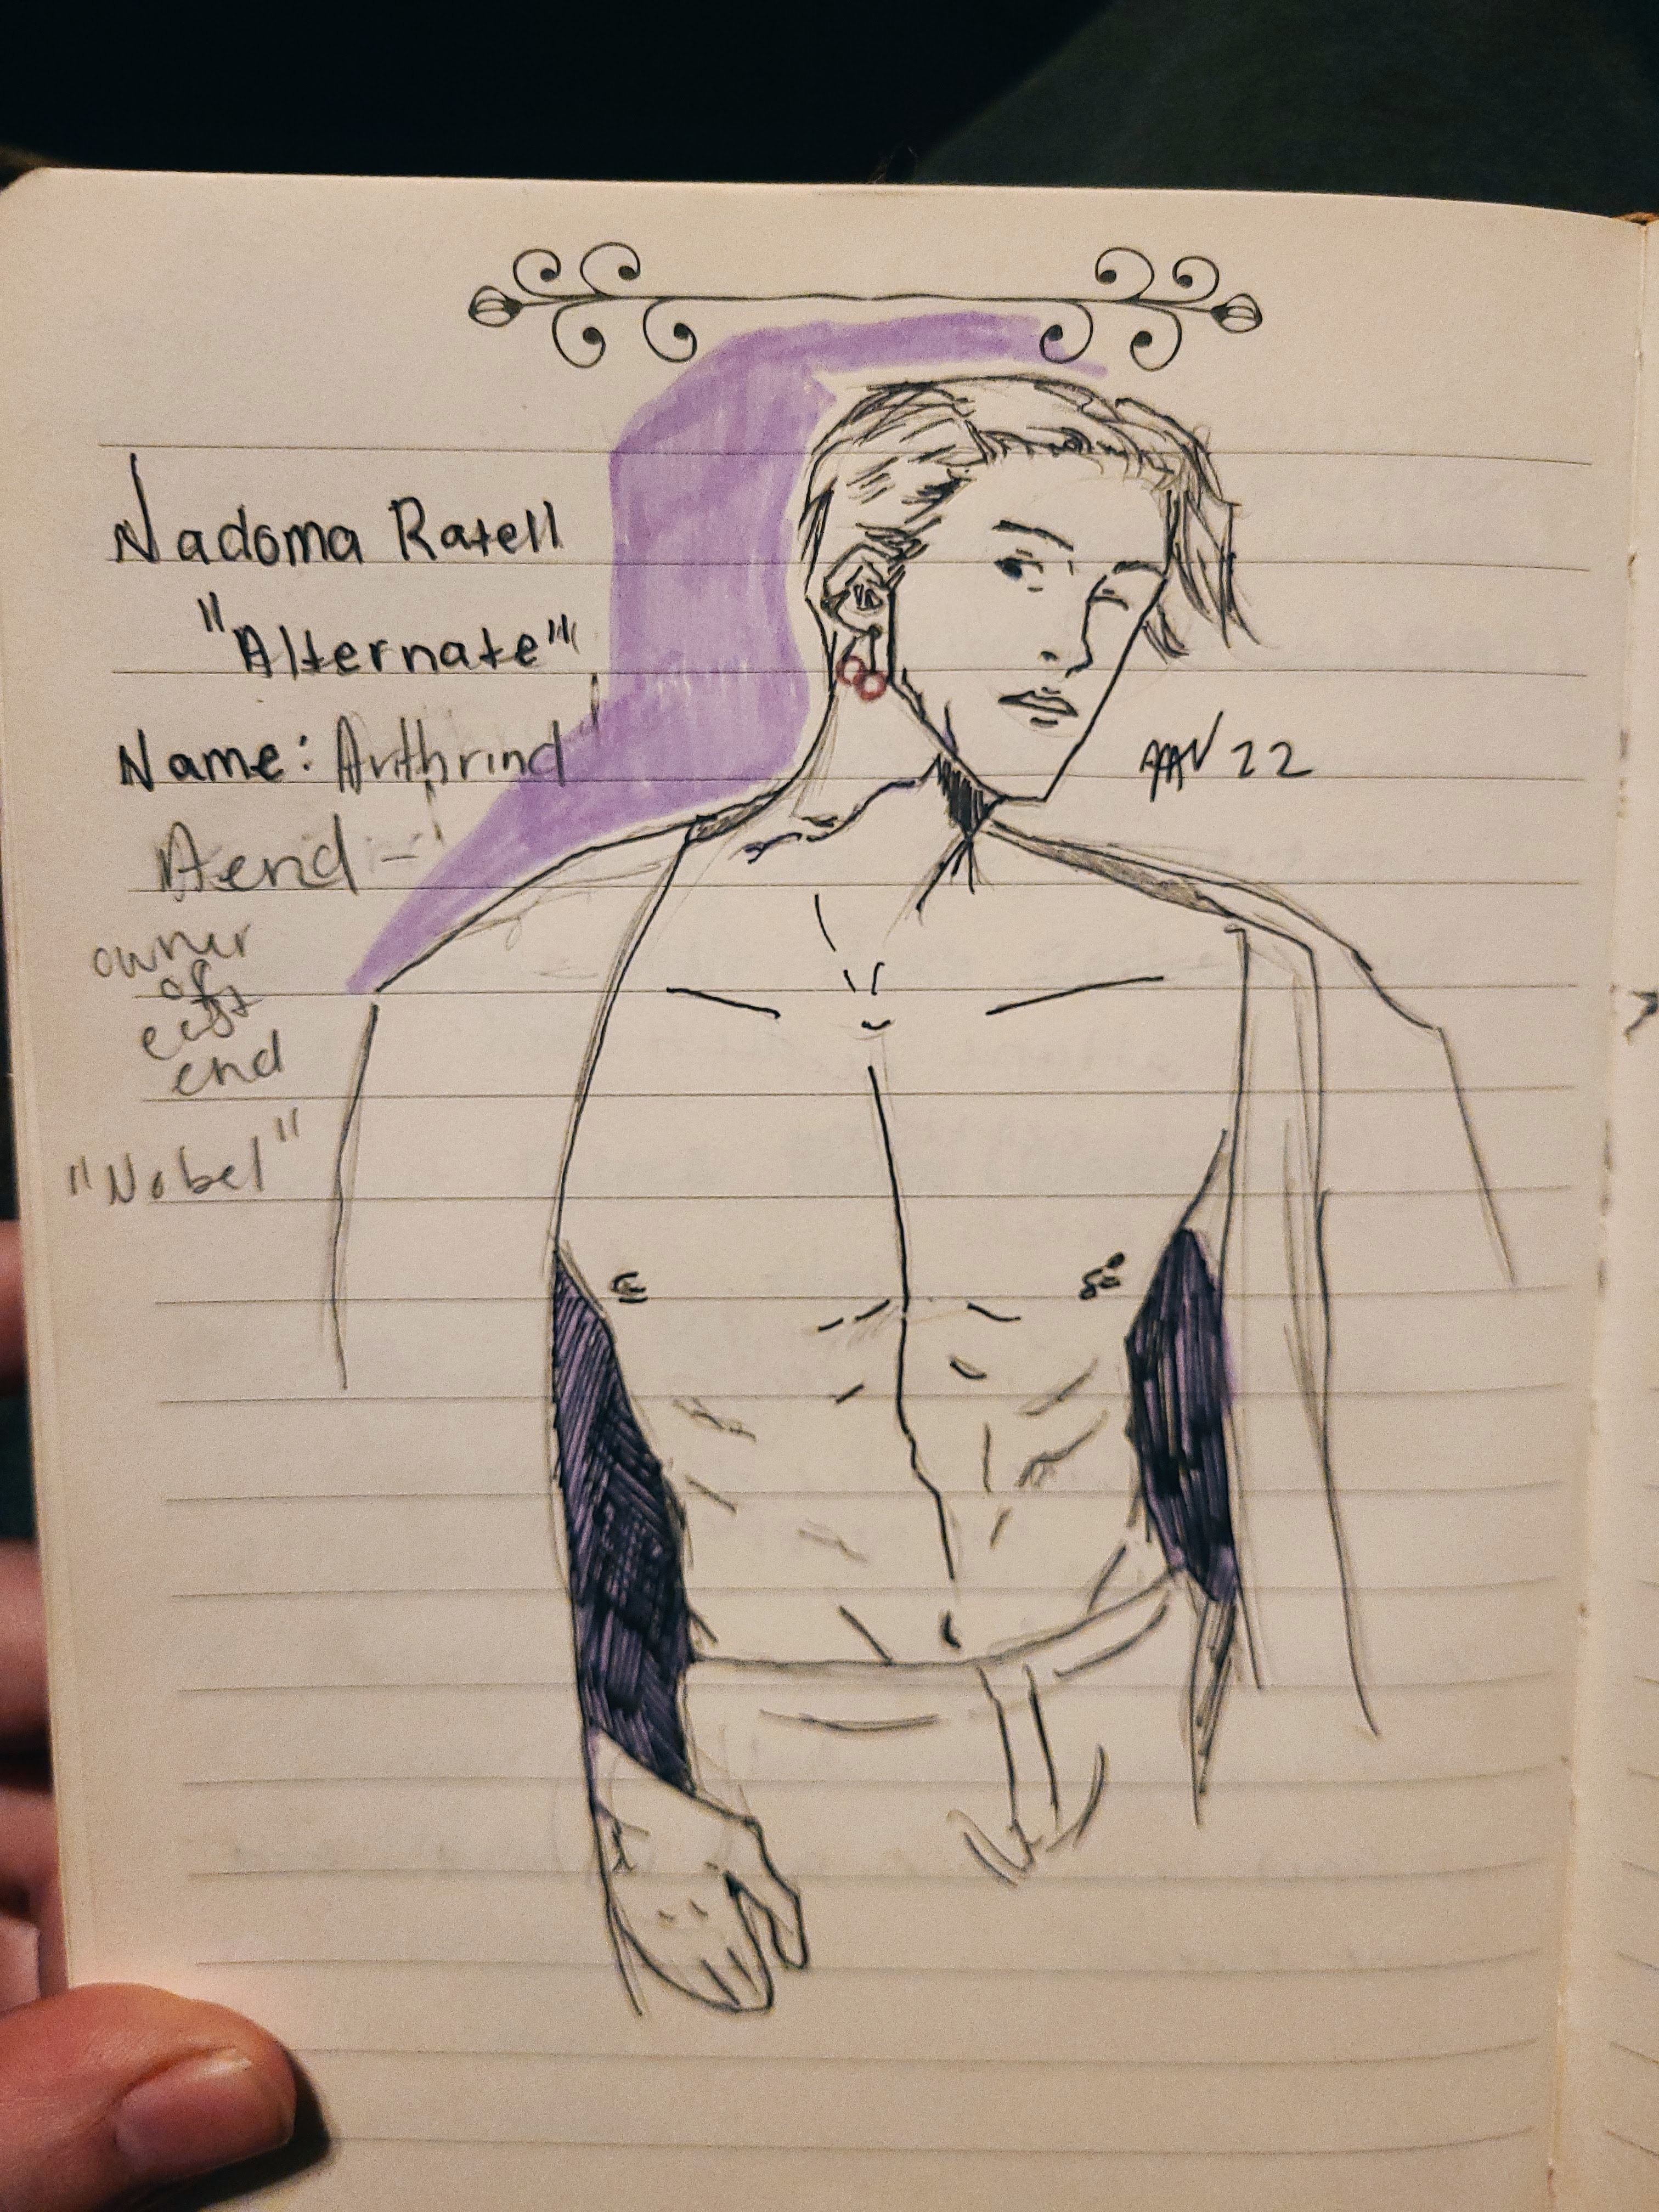 Nadoma Ratell
"Alternate"
Name: Arthrind
Aend-
owner
of
east
end
"Nobel"
22